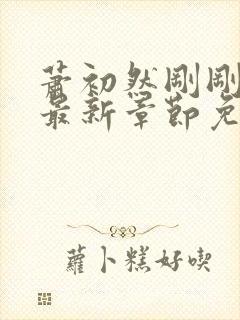 蕭初然剛剛
最新章節免
蘿卜糕好喫